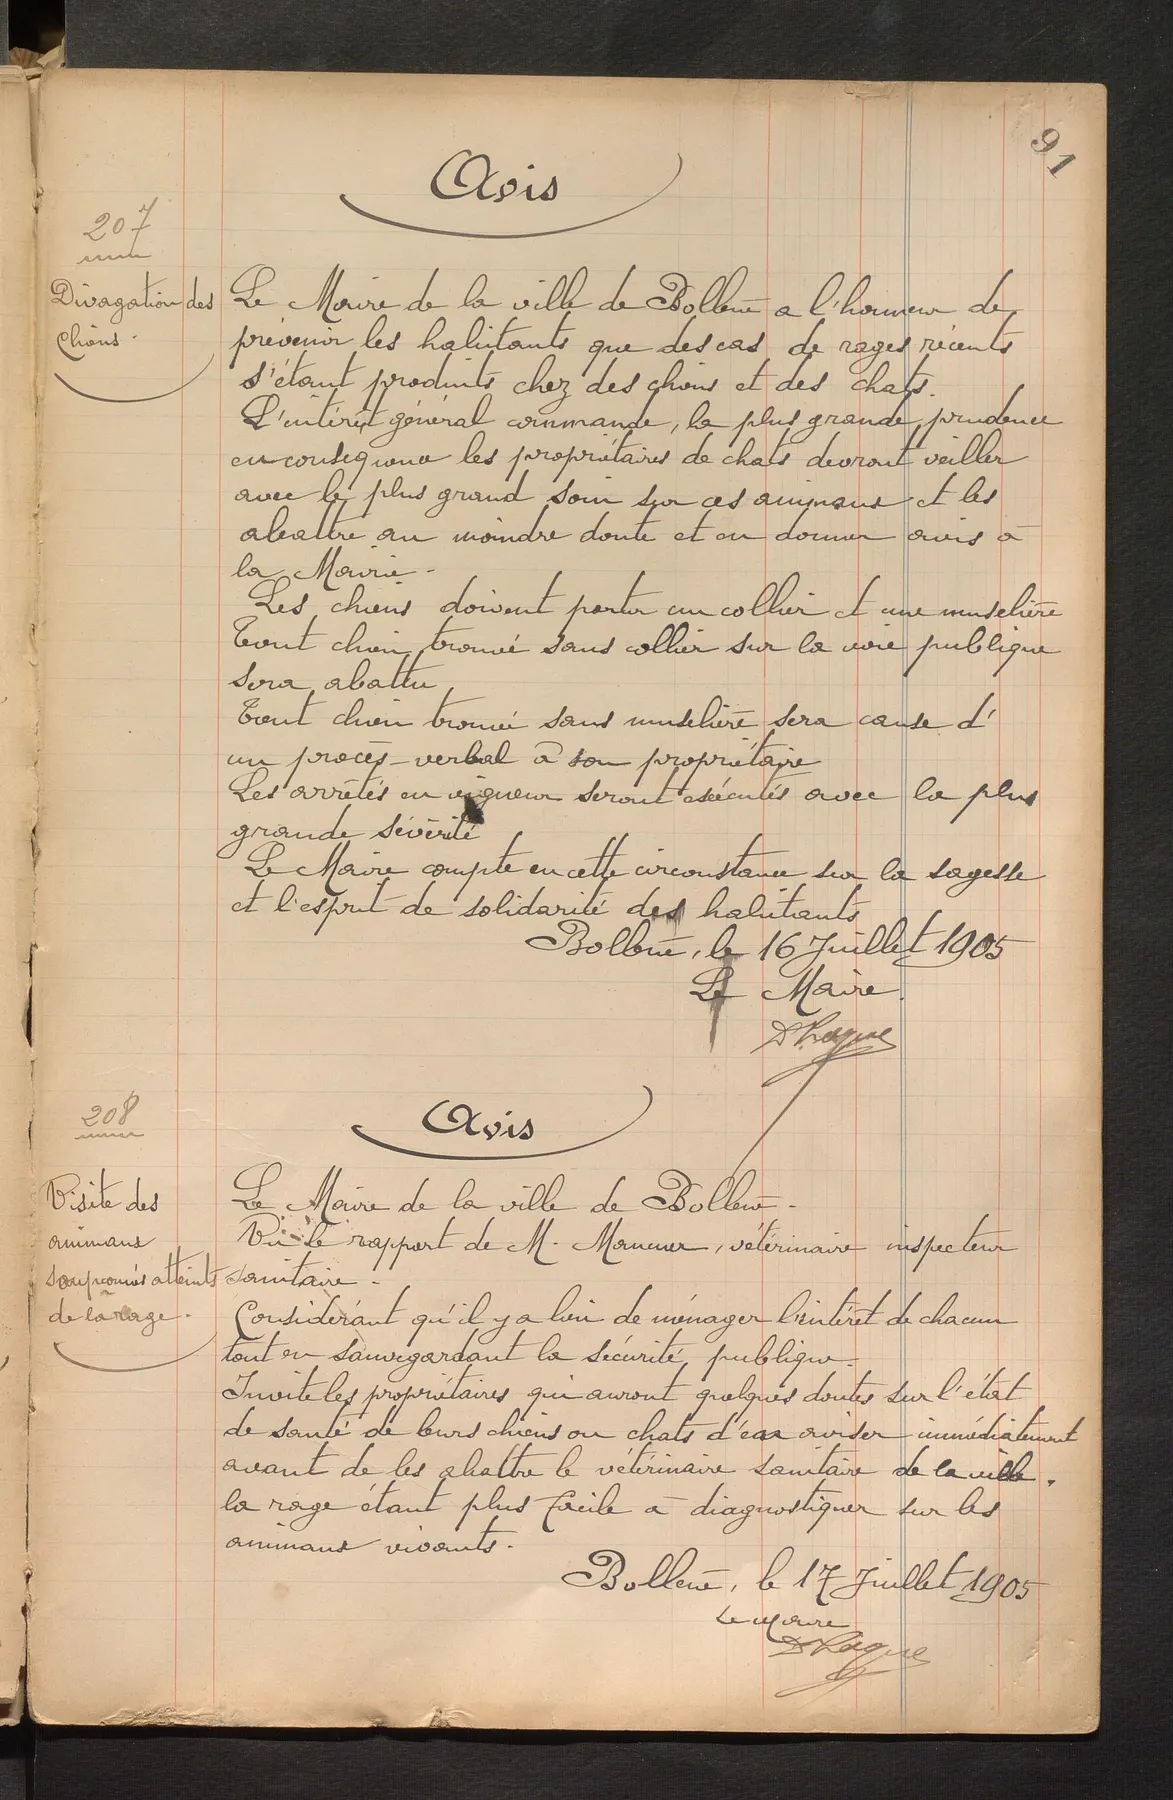 91
Avis
207
Divagation des
chiens.
Le Maire de la ville de Bollène a l'honneur de
prévenir les habitants que des cas de rages récents
s'étant produits chez des chiens et des chats.
L'intérêt général commande, la plus grande prudence
en conséquence les propriétaires de chats devront veiller
avec le plus grand soin sur ces animaux et les
abattre au moindre doute et en donner avis à
la Mairie.
Les chiens doivent porter un collier et une muselière
Tout chien trouvé sans collier sur la voie publique
sera abattu
Tout chien trouvé sans muselière sera cause d'
un procès-verbal à son propriétaire
Les arrêtés en vigueur seront exécutés avec la plus
grande sévérité
Le Maire compte en cette circonstance sur la sagesse
et l'esprit de solidarité des habitants
Bollène, le 16 Juillet 1905
Le Maire.
208
Avis
Visite des
animaux
soupçonnés atteints
de la rage.
Le Maire de la ville de Bollène.
Vu le rapport de M. , vétérinaire inspecteur
sanitaire.
Considérant qu'il y a lieu de ménager l'intérêt de chacun
tout en sauvegardant la sécurité publique.
Invite les propriétaires qui auront quelques doutes sur l'état
de santé de leurs chiens ou chats d'en aviser immédiatement
avant de les abattre le vétérinaire sanitaire de la ville.
la rage étant plus facile à diagnostiquer sur les
animaux vivants.
Bollène, le 17 Juillet 1905
Le Maire